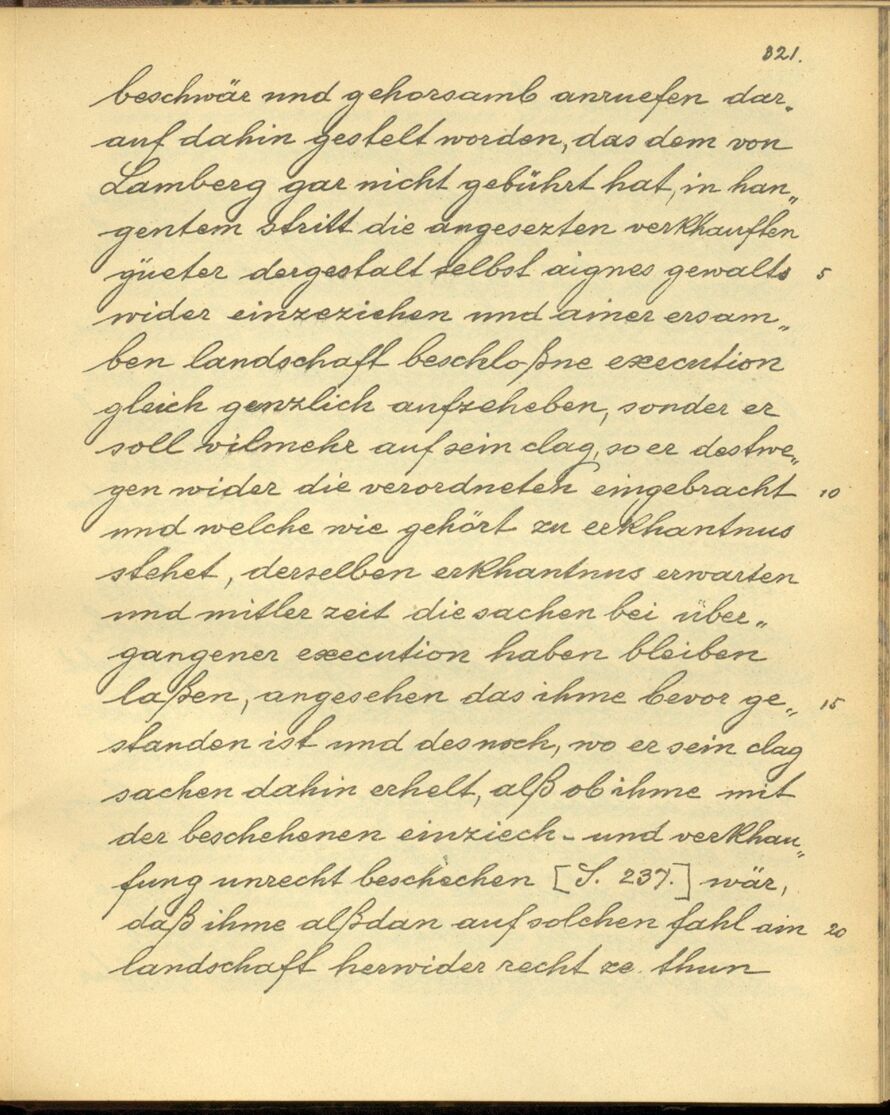 321.
beschwär und gehorsamb anruefen dar„
auf dahin gestelt worden, das dem von
Lamberg gar nicht gebührt hat, in han„
gentem stritt die angesezten verkhauften
güeter dergestalt selbst aignes gewalts 5
wider einzeziehen und ainer ersam„
ben landschaft beschloßne execution
gleich genzlich aufzeheben, sonder er
soll vilmehr auf sein clag, so er destwe„
gen wider die verordneten eingebracht 10
und welche wie gehört zu erkhantnus
stehet, derselben erkhantnus erwarten
und mitler zeit die sachen bei über„
gangener execution haben bleiben
laßen, angesehen das ihme bevor ge„ 15
standen ist und desnoch, wo er sein clag
sachen dahin erhelt, alß ob ihme mit
der beschehenen einziech- und verkhau„
fung unrecht beschechen [S. 237.] wär,
daß ihme alßdan auf solchen fahl ain 20
landschaft herwider recht ze thun